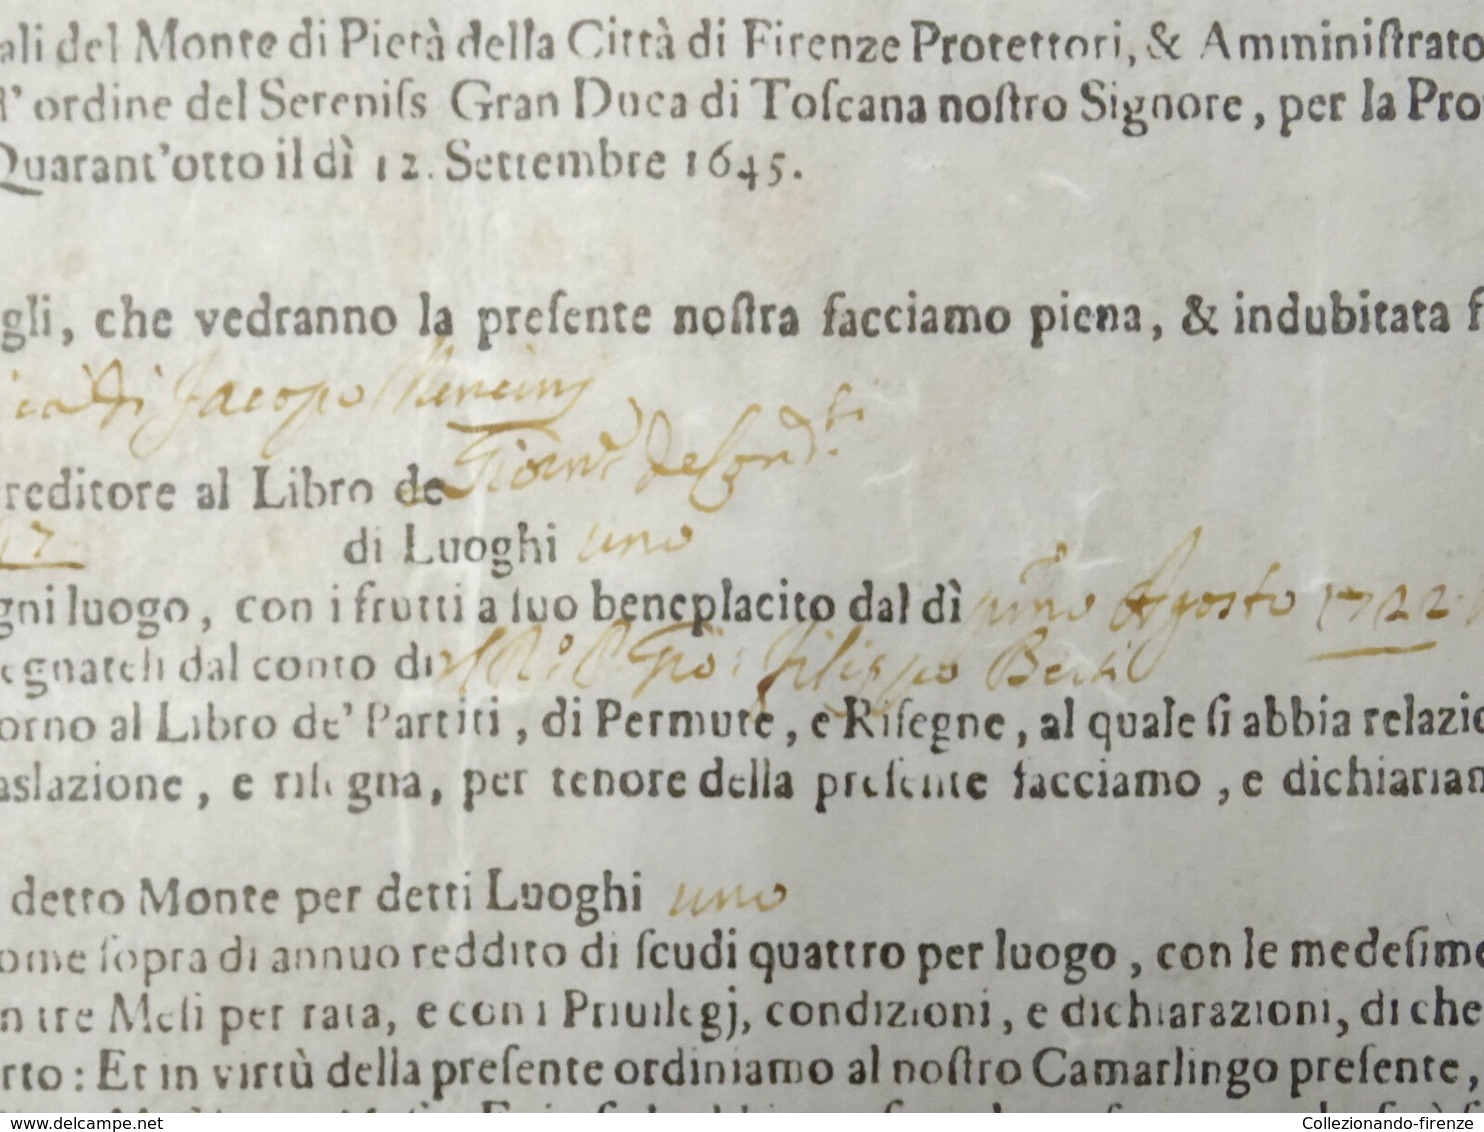 ali del Monte di Pietà della Città di Firenze Protettori, & Amminiſtrato
l' ordine del Sereniſs Gran Duca di Toſcana noſtro Signore, per la Pro
Quarant'otto il dì 12. Settembre 1645.
gli, che vedranno la preſente noſtra facciamo piena, & indubitata f
di Jacopo
reditore al Libro de
17 di Luoghi uno
gni luogo, con i frutti a ſuo beneplacito dal dì primo Agosto 1722
egnateli dal conto di Filippo Berti
orno al Libro de' Partiti, di Permute, e Riſegne, al quale ſi abbia relazio
aslazione, e riſegna, per tenore della preſente facciamo, e dichiarian
detto Monte per detti Luoghi uno
ome ſopra di annuo reddito di ſcudi quattro per luogo, con le medeſime
n tre Meſi per rata, e con i Priuilegj, condizioni, e dichiarazioni, di che
rto: Et in virtù della preſente ordiniamo al noſtro Camarlingo preſente,
www.delcampe.net Collezionando-firenze